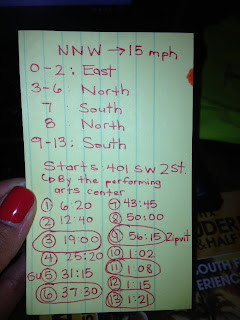 NNW → 15 mph
0-2: East
3-6: North
7 South
8 North
9-13: South
Starts 401 SW 2St.
By the performing
arts center
① 6:20
② 12:40
③ 19:00
④ 25:20
⑤ 31:15
⑥ 37:30
⑦ 43:45
⑧ 50:00
⑨ 56:15 Zipvit
⑩ 1:02
⑪ 1:08
⑫ 1:15
⑬ 1:21
& HALF
SOUTH F